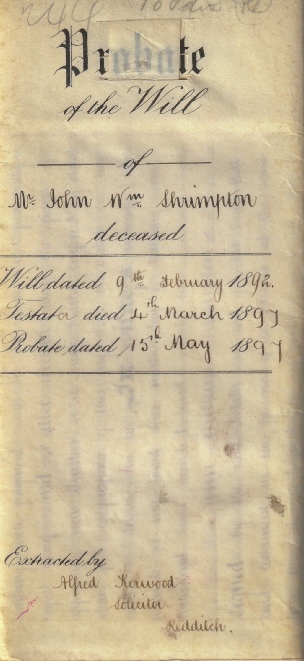 Probate
of the Will
of
Mr. John Wm. Shrimpton
deceased
Will dated 9th February 1892.
Testator died 4th March 1897
Probate dated 15th May 1897
Extracted by
Alfred Kerwood
Solicitor
Redditch.